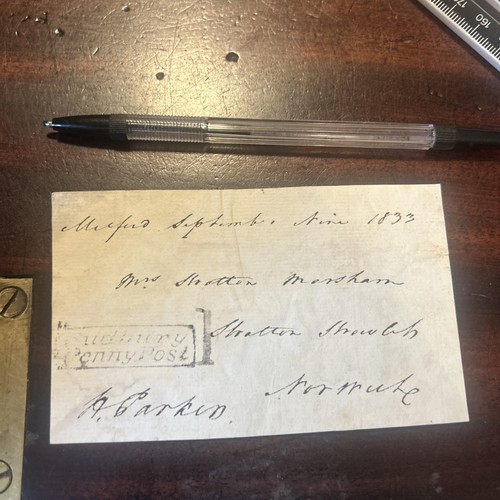 Melford September Nine 1833
Mrs Stratton Marsham
Stratton Strawless
Sudbury
PennyPost
Norwich
H. Parker.
160